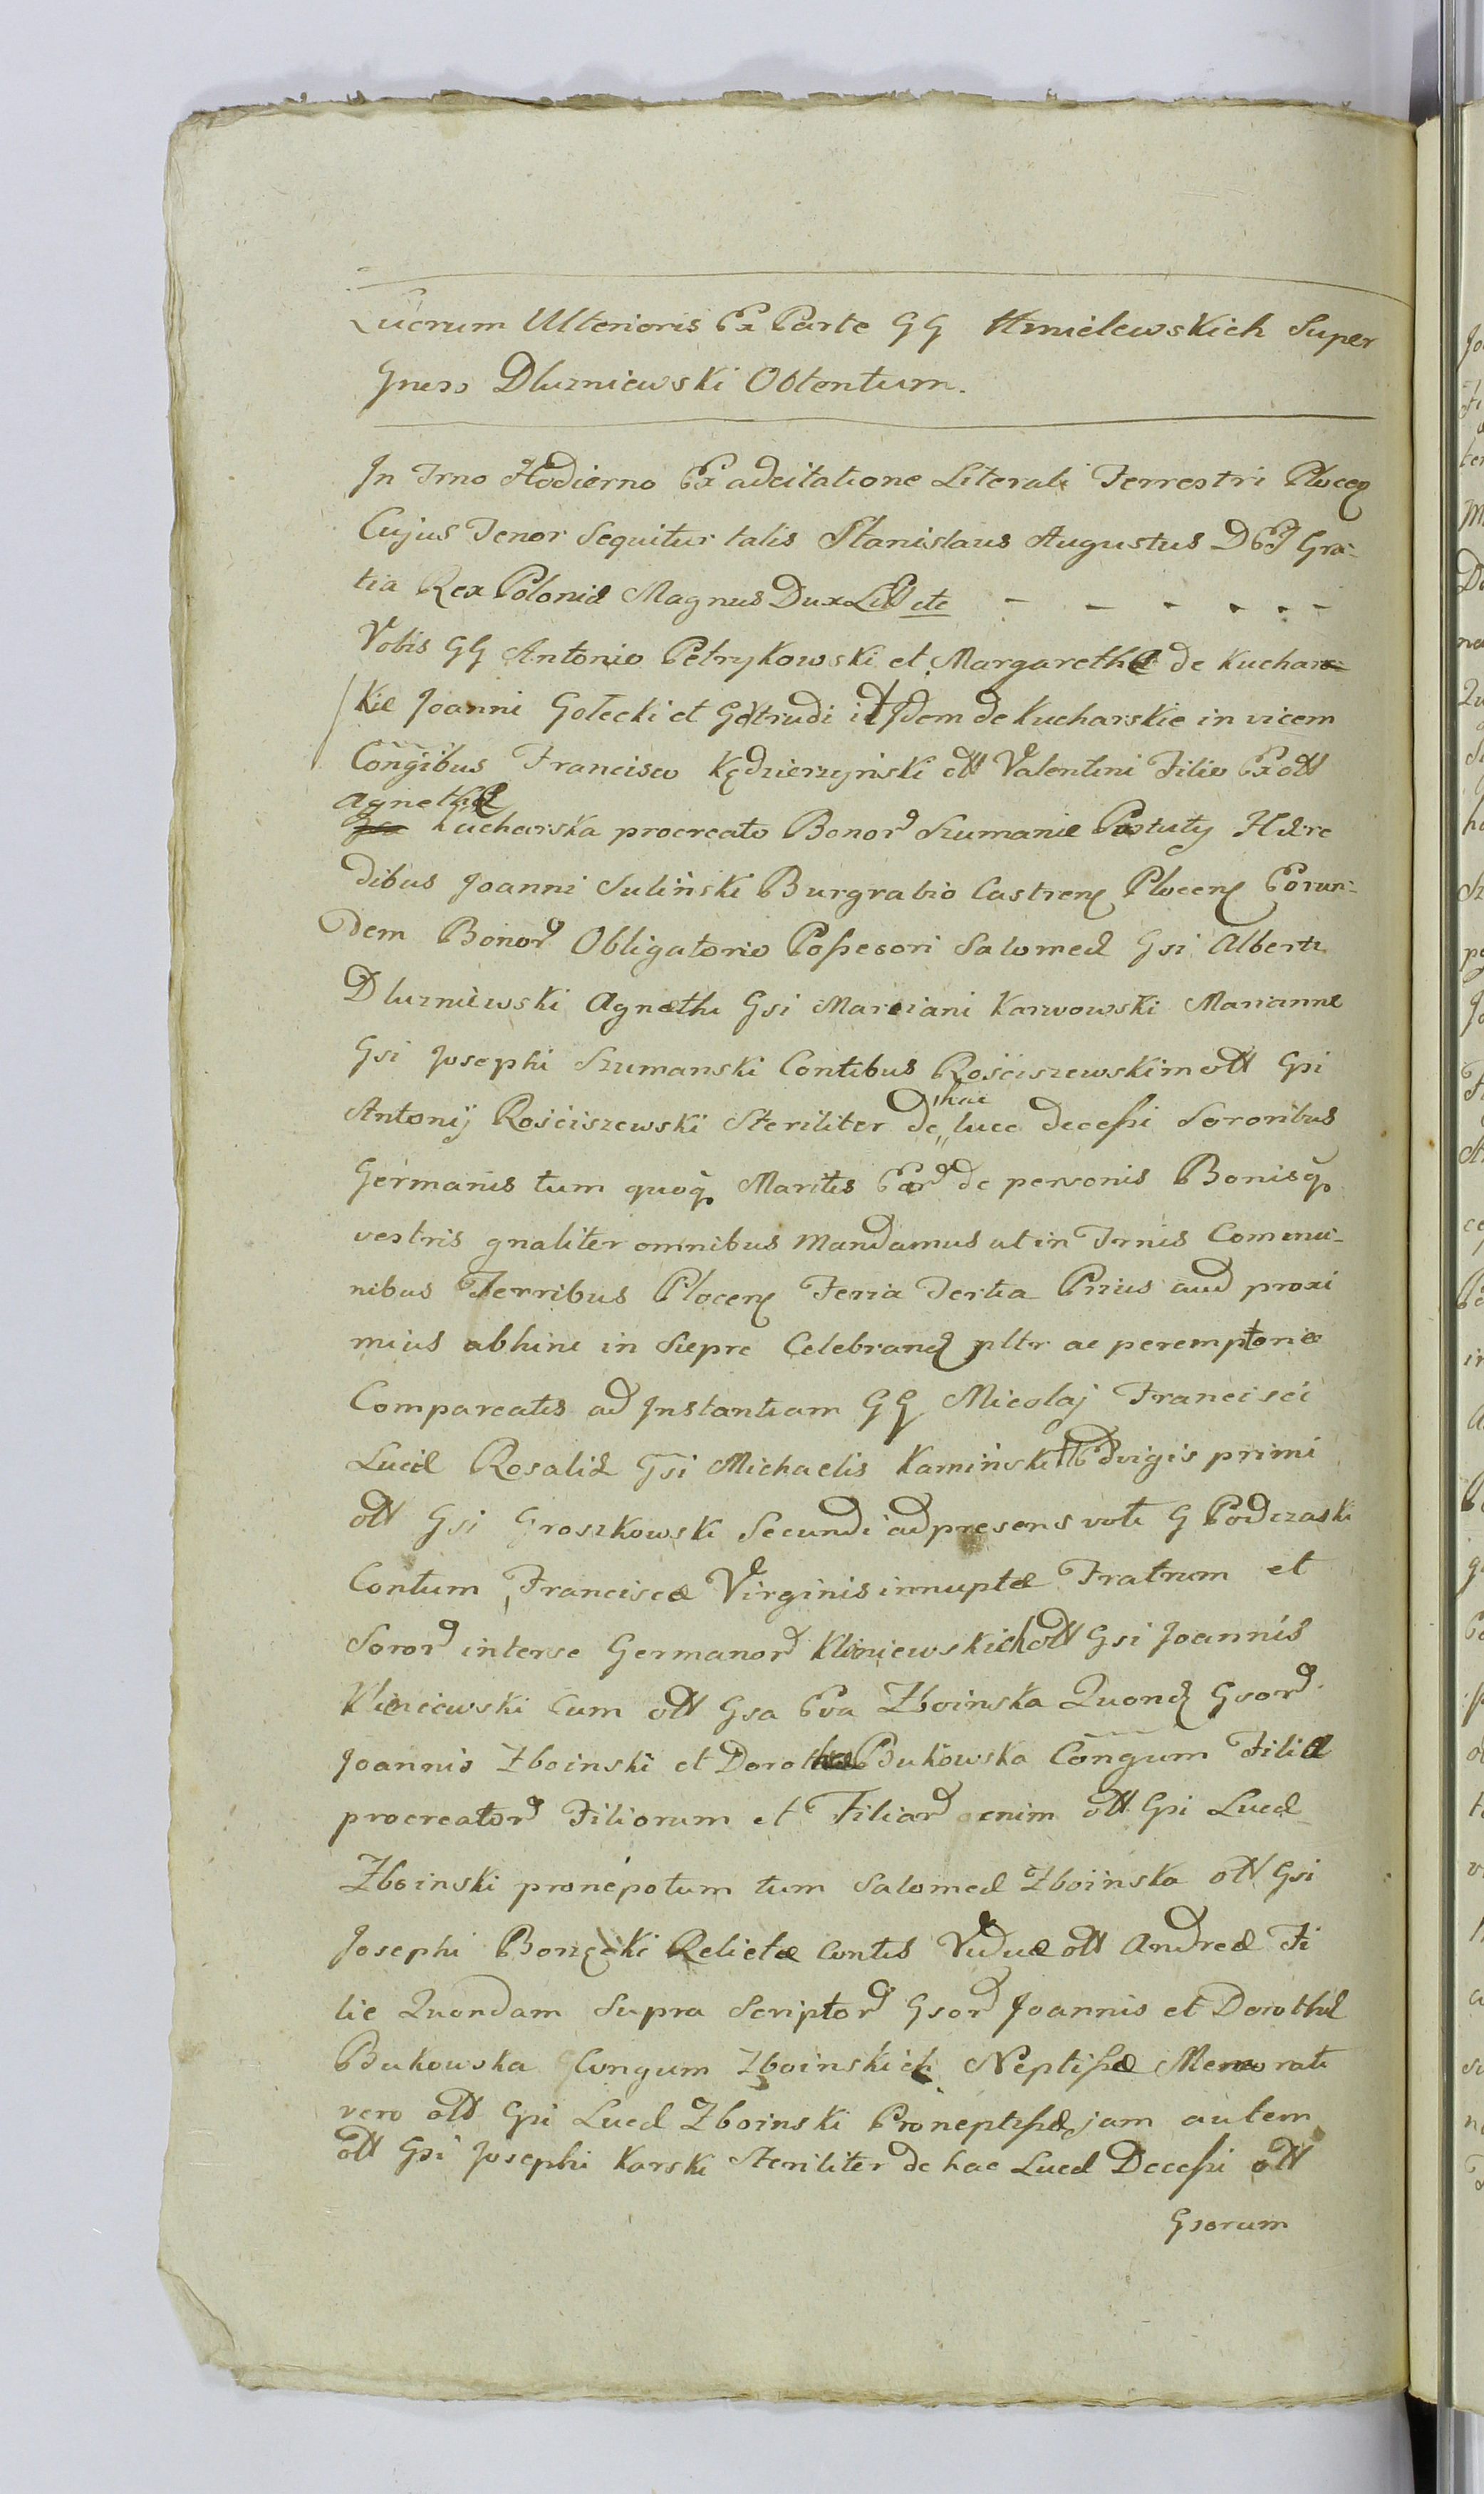 Lucrum Ulterioris Ex Parte GG Hmielewskich Super
Gneso Dluzniewski Obtentum.
In Trno Hodierno Ex adcitatione Literali Terrestri Plocen
Cujus Tenor Sequitur talis Stanislaus Augustus DEI Gra-
tia Rex Poloniæ Magnus Dux Litt etc
Vobis GG Antonio Petrykowski et Margarethæ de Kuchar-
kie Joanni Gołecki et Getrudi itidem de Kucharskie in vicem
Congibus Francisco Kędzierzyński olt Valentini Filio Ex olt
Agnethæ
Kucharska procreato Bonor Szumanie Pustuty Hære
dibus Joanni Suliński Burgrabio Castren Plocen Eorun-
dem Bonor Obligatorio Possesori Salomeæ Gsi Alberti
Dluzniewski Agnethi Gsi Marciani Karwowski Mariannæ
Gsi Josephi Szumanski Contibus Rościszewskim olt Gsi
Antonij Rościszewski Steriliter de hac luce decessi Sororibus
Germanis tum quoq Maritis Ear de personis Bonisq
vestris gnaliter omnibus Mandamus ut in Trnis Commu-
nibus Terribus Plocen Feria Tertia Prius aud proxi
mius abhinc in Siepre Celebrand pltr ac peremptorie
Compareatis ad Instantiam GG Micolaj Francisci
Luciæ Rosaliæ Gsi Michaelis Kamiński Hedvigis primi
olt Gsi Groszkowski Secundi ad presens voti G Podczaski
Contum, Franciscæ Virginis innuptæ Fratrum et
Soror interse Germanor Kliniewskich olt Gsi Joannis
Kliniewski Cum olt Gsa Eva Zboinska Quond Gsor
Joannis Zboinski et Dorothea Bukowska Congum Filia
procreator Filiorum et Filiar enim olt Gsi Lucæ
Zboinski pronepotum tum Salomeæ Zboinska olt Gsi
Josephi Bonzęcki Relictæ Contis Viduæ olt Andreæ Fi
lie Quondam Supra Scriptor Gsor Joannis et Dorotheæ
Bukowska Congum Zboinskich Neptissæ Memorati
vero olt Gsi Lucæ Zboinski Proneptissæ, jam autem
olt Gsi Josephi Karski Steriliter de hac Luce Decessi olt
Gsorum